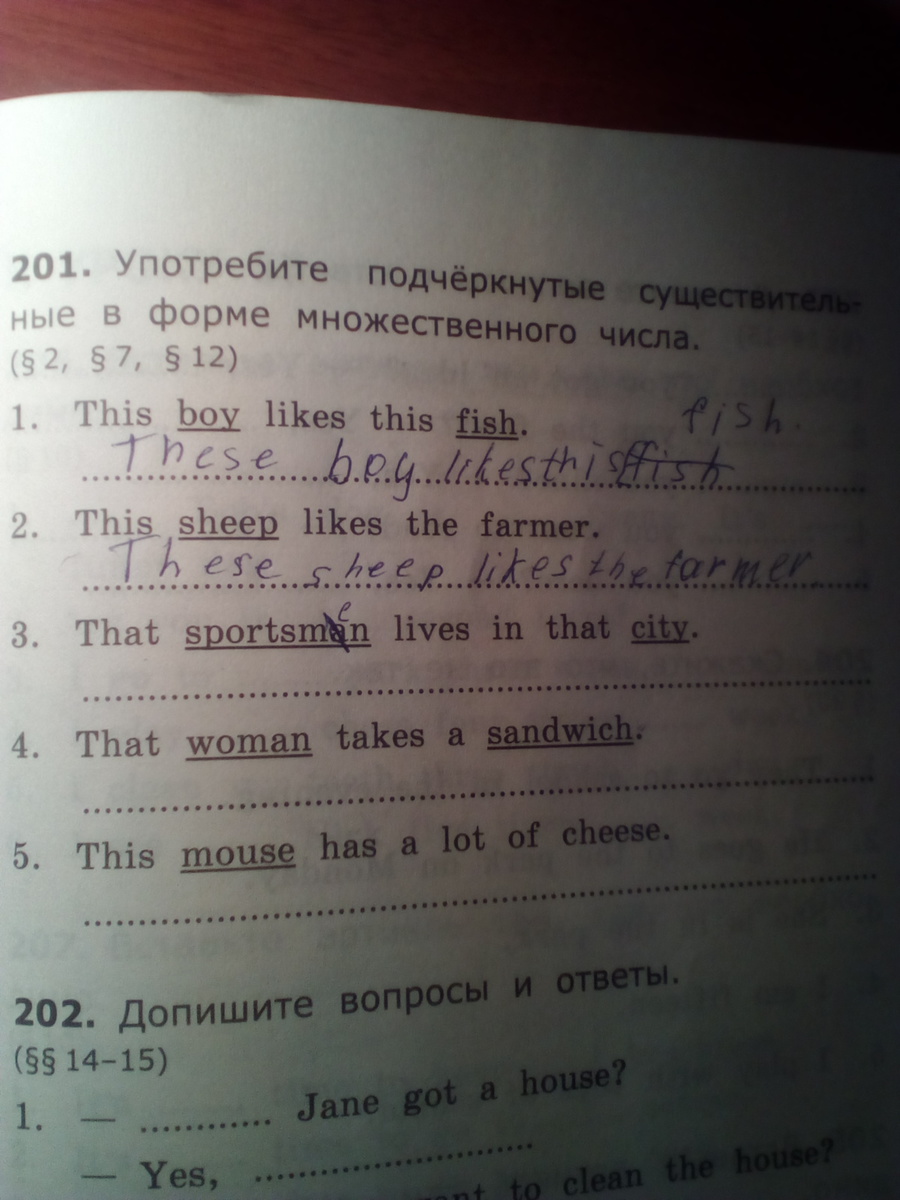 201. Употребите подчёркнутые существитель-
ные в форме множественного числа.
(§ 2, § 7, § 12)
1. This boy likes this fish. fish.
These boy likes this fish
2. This sheep likes the farmer.
These sheep likes the farmer
3. That sportsmen lives in that city.
4. That woman takes a sandwich.
5. This mouse has a lot of cheese.
202. Допишите вопросы и ответы.
(§§ 14–15)
1. — ............ Jane got a house?
— Yes, ........................
to clean the house?